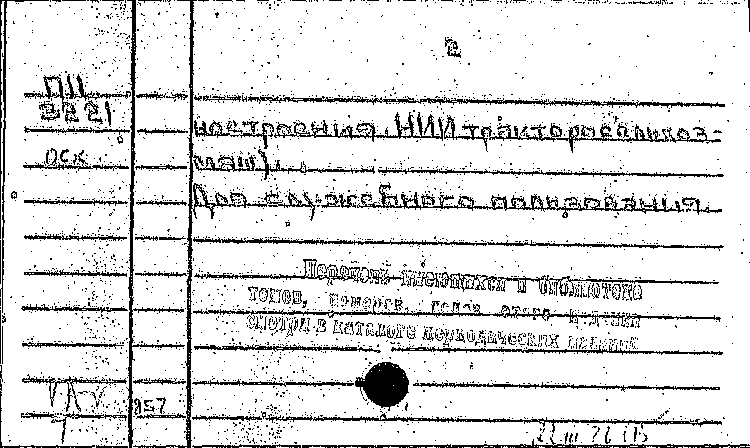 2
П11
3221
ностроения. НИИ тракторосельхоз-
маш).
ОСХ
Для служебного пользования.
Перечень имеющихся в библиотеке
томов, номеров, годов этого издания
смотри в каталоге периодических изданий
957